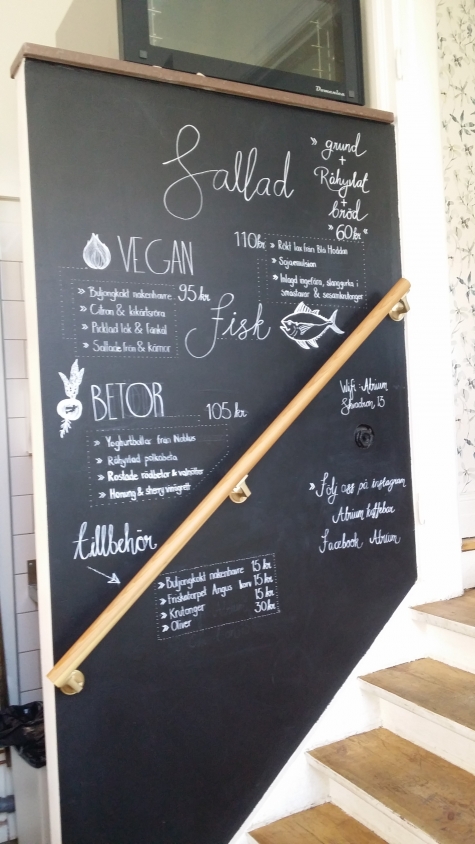 Sallad
» grund
+
Råhyvlat
+
bröd
» 60 kr «
VEGAN 95 kr
» Buljongkokt nakenhavre
» Citron & lakritsröra
» Picklad lök & fänkål
» Sallad & frön & kärnor
Fisk
110kr
» Rökt lax från Bla Hoddan
» Sojaemulsion
» Inlagd ingefära, slanggurka i
småtärnor & sesamkrutonger
BETOR 105 kr
» Yoghurtbollar från
» Råhyvlad polkabeta
» Rostade rödbetor & valnötter
» Honung & sherry vinigrett
Wifi: Atrium
13
» Följ oss på instagram
Atrium kaffebar
Facebook Atrium
tillbehör
» Buljongkokt nakenhavre 15 kr
» Angus 15 kr
» Krutonger 15 kr
» Oliver 30 kr